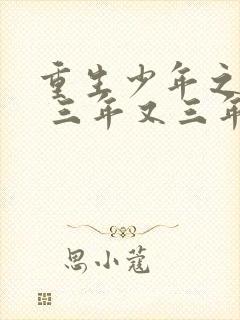 重生少年之
三年又三年
思小蔻